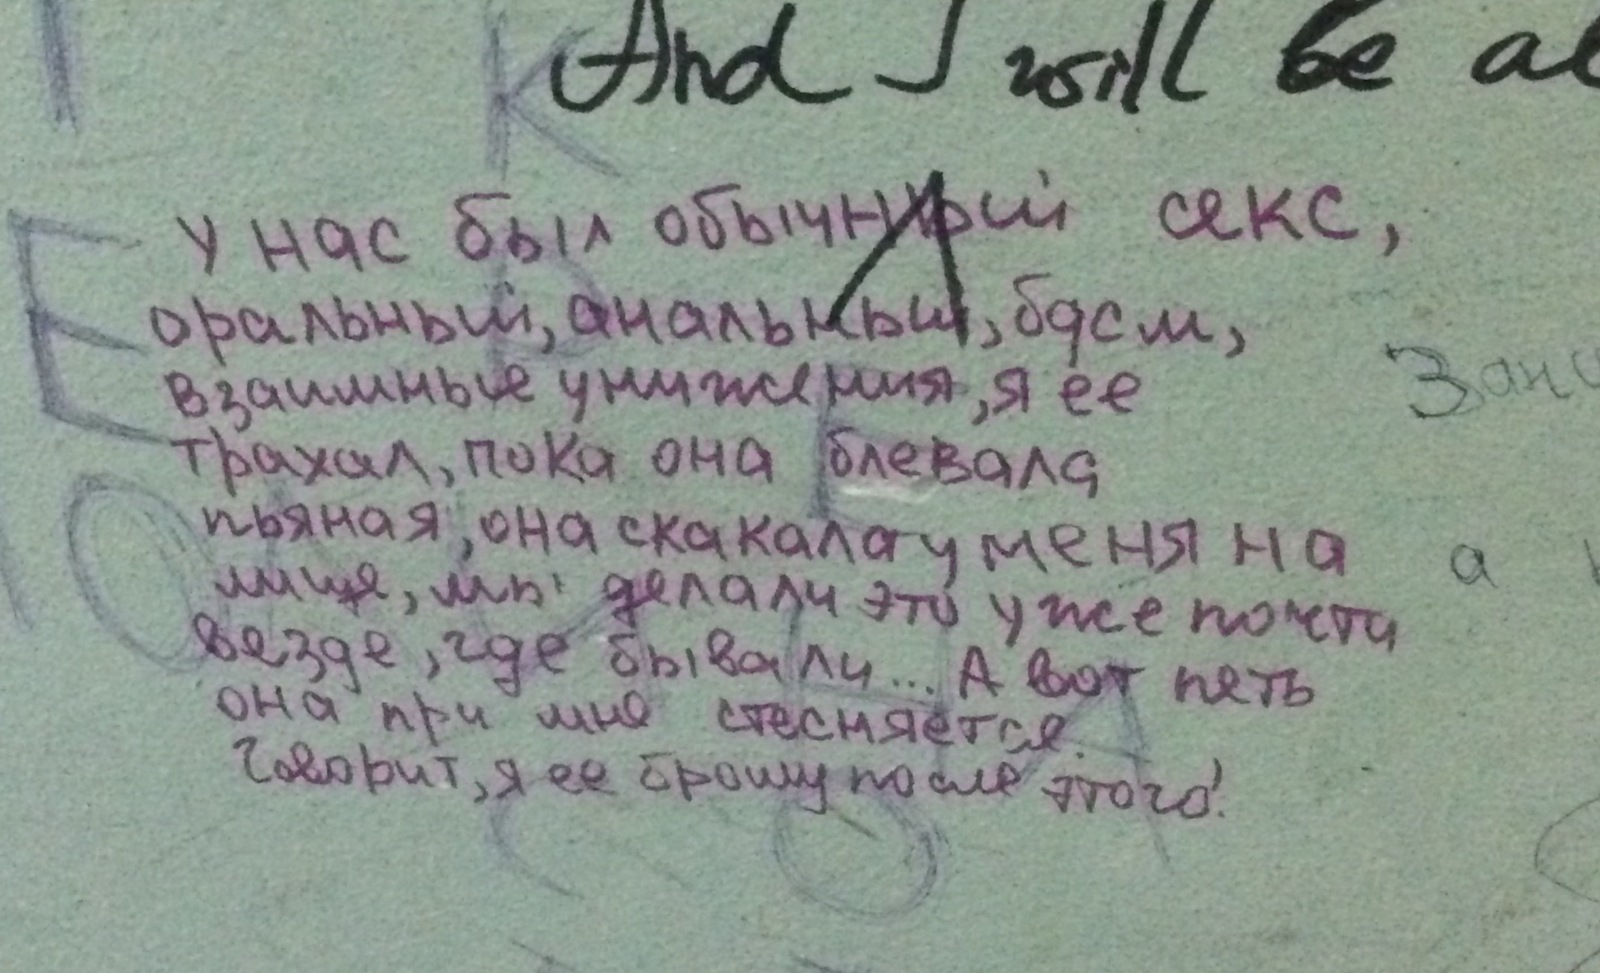 And I will be al
у нас был обычный секс,
оральный, анальный, бдсм,
взаимные унижения, я ее
трахал, пока она блевала
пьяная, она скакала у меня на
лице, мы делали это уже почти
везде, где бывали... А вот петь
она при мне стесняется.
Говорит, я ее брошу после этого!
Зани
а